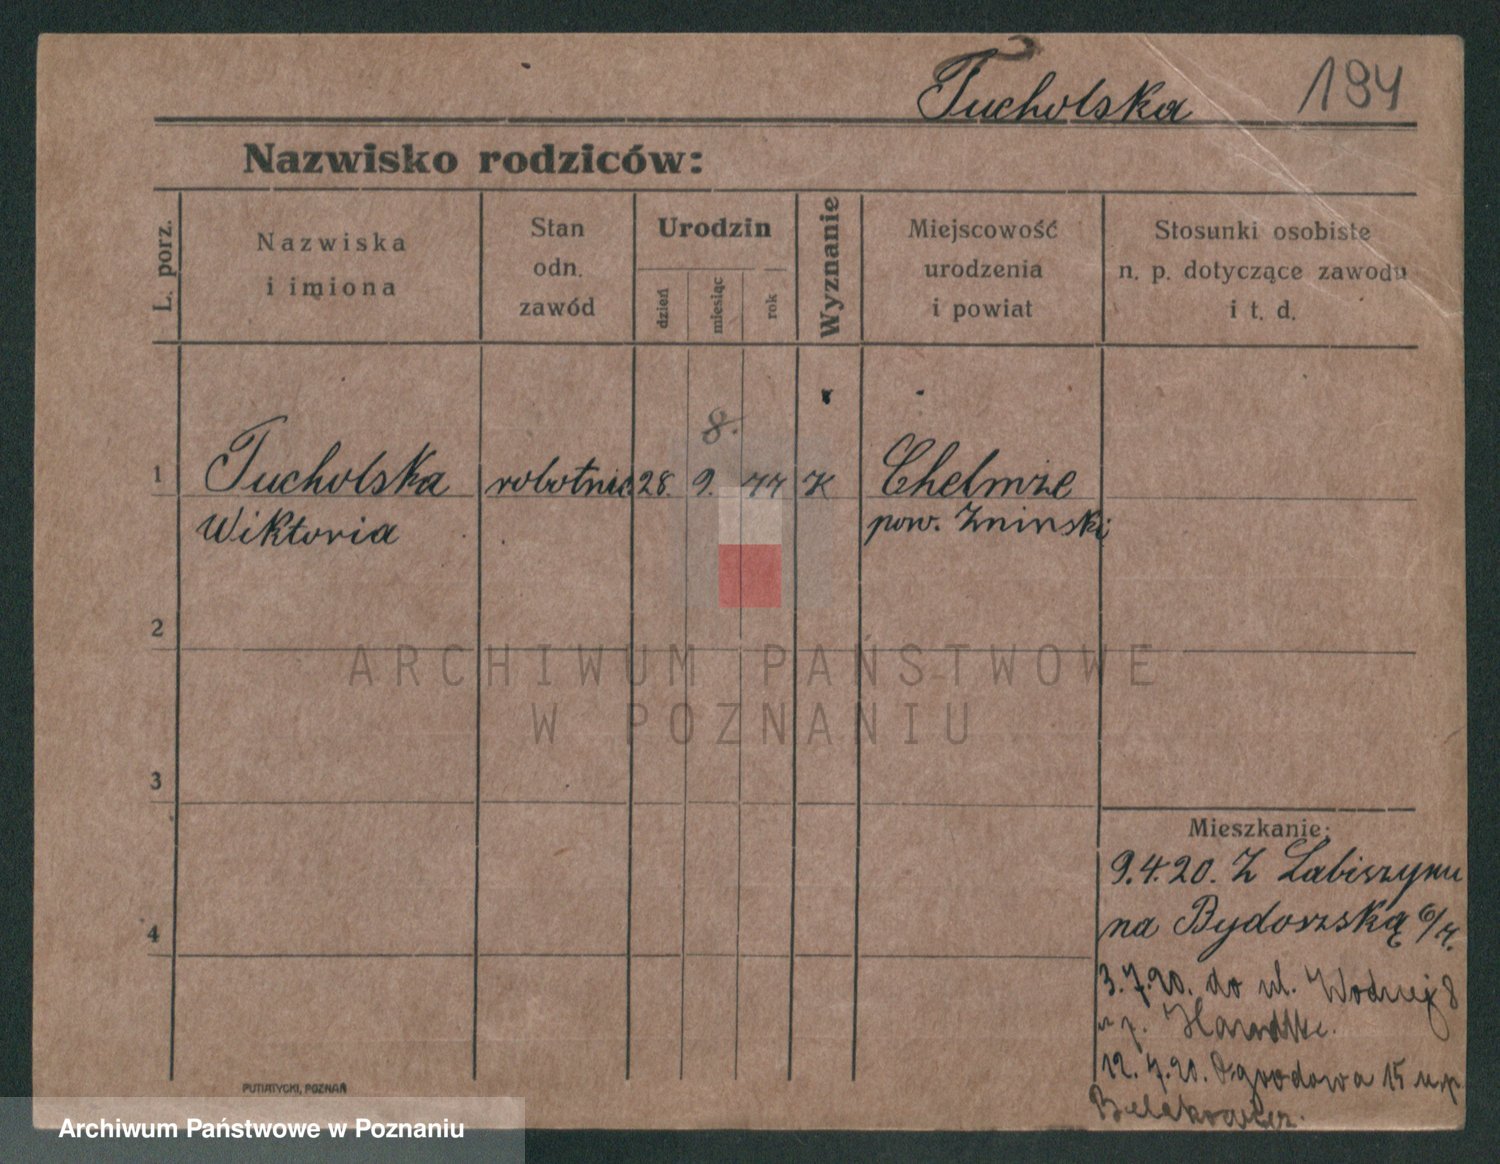 Tucholska
194
Nazwisko rodziców:
L. porz.
Nazwiska
i imiona
Stan
odn.
zawód
Urodzin
dzień
miesiąc
rok
Wyznanie
Miejscowość
urodzenia
i powiat
Stosunki osobiste
n. p. dotyczące zawodu
i t. d.
8.
1 Tucholska robotnic. 28. 9. 77 K Chelmże
Wiktoria pow. Zninski
2
3
4
Mieszkanie:
9.4.20. Z Labiszynu
na Bydoszską 6/7.
3.7.20. do ul. Wodnej 8
12.7.20. Ogrodowa 15 u p.
PUTIATYCKI, POZNAŃ
ARCHIWUM PAŃSTWOWE
W POZNANIU
Archiwum Państwowe w Poznaniu